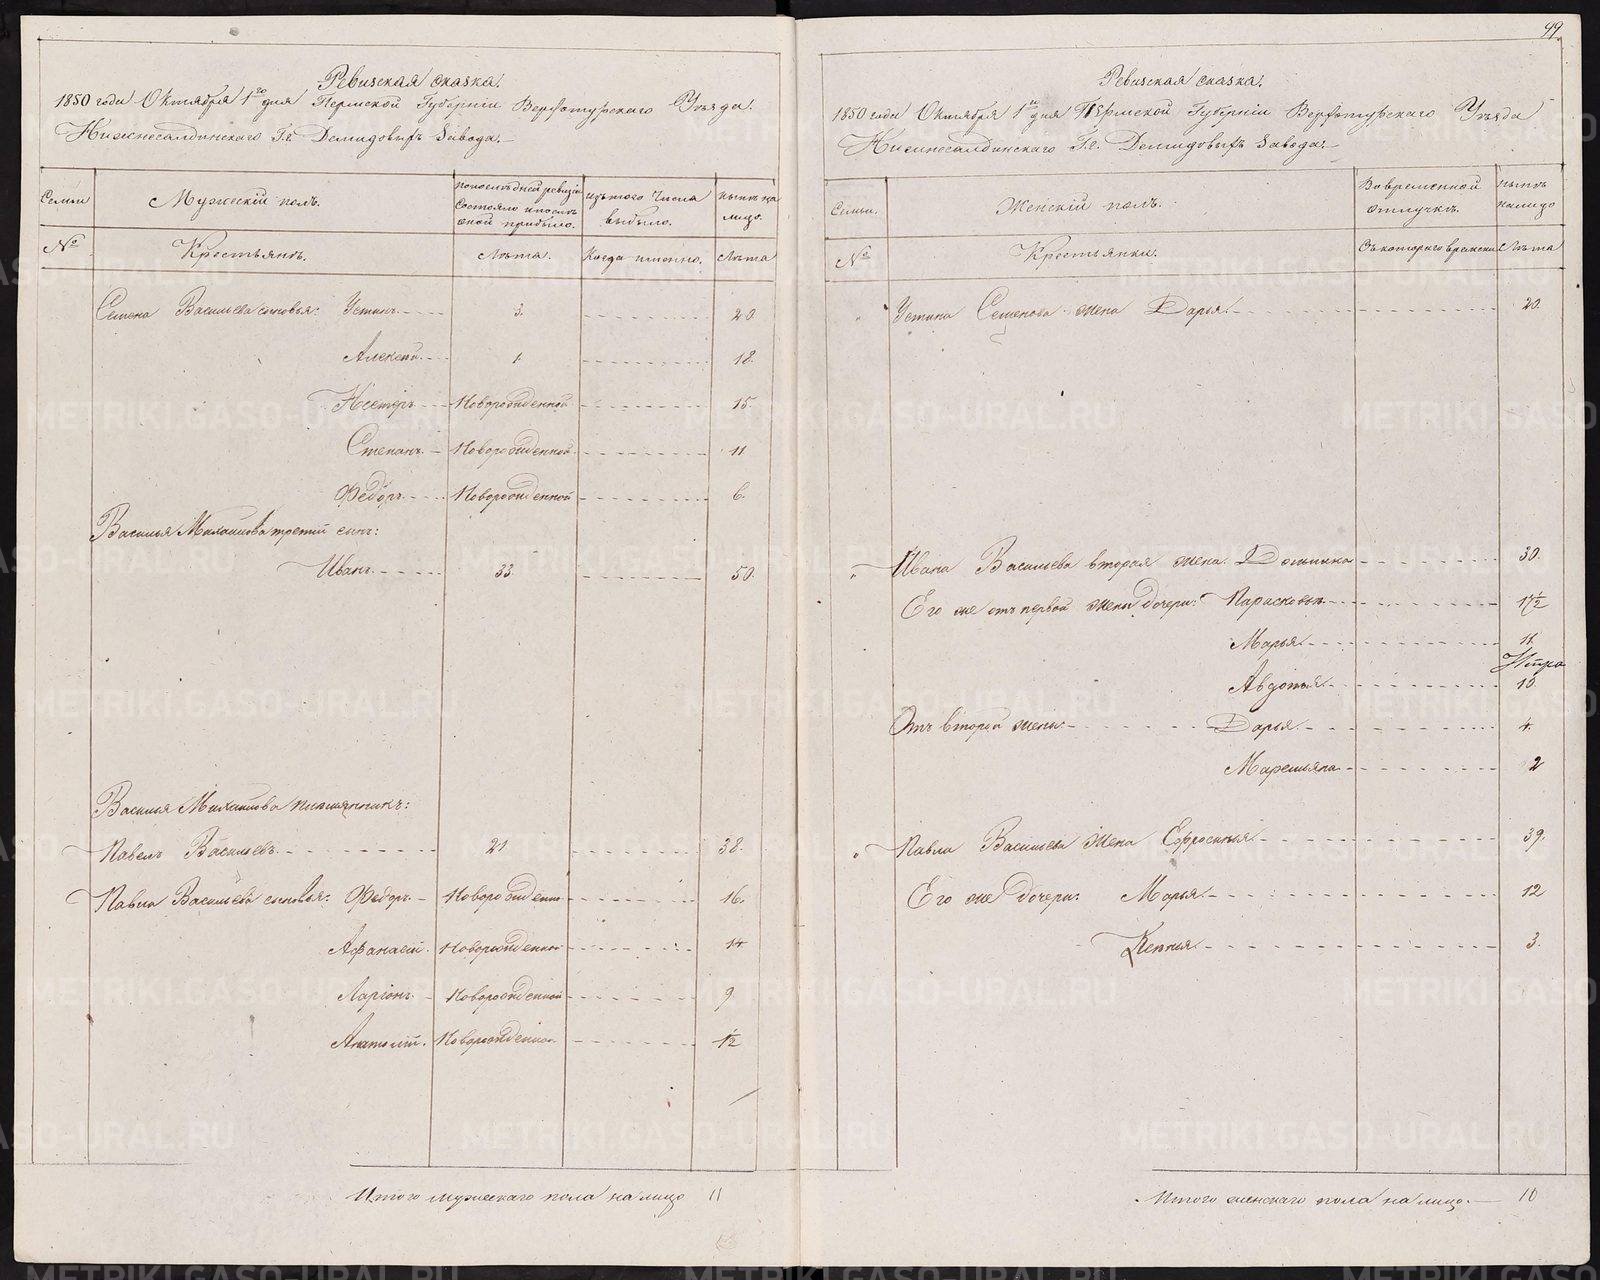 99
Ревизская сказка.
1850 года Октября 1го дня Пермской Губерніи Верхотурскаго Уѣзда.
Нижнесалдинскаго Г.г. Демидовыхъ Завода.
Семьи
Мужескій полъ.
По послѣдней ревизіи состояло и послѣ оной прибыло.
Изъ того числа выбыло.
Нынѣ на лицо.
№
Крестьянъ.
Лѣта.
Когда имянно.
Лѣта
Семена Васильева сыновья: Устинъ 3. 20.
Алексѣй 1. 18.
Нестеръ Новорожденной 15.
Степанъ Новорожденной 11
Федоръ Новорожденной 6.
Василья Михайлова третій сынъ:
Иванъ 33. 50.
Василья Михайлова племянникъ:
Павелъ Васильевъ 21 38.
Павла Васильева сыновья: Федоръ Новорожденной 16.
Афанасій Новорожденной 14
Ларіонъ Новорожденной 9
Анатолій Новорожденной 1/2
Итого мужескаго пола на лицо 11
Ревизская сказка.
1850 года Октября 1го дня Пермской Губерніи Верхотурскаго Уѣзда
Нижнесалдинскаго Г.г. Демидовыхъ Завода.
Семьи.
Женскій полъ.
Во временной отлучкѣ.
Нынѣ на лицо
№
Крестьянки.
Съ котораго времени
Лѣта
Устина Семенова жена Дарья 20.
Ивана Васильева вторая жена Домника 30.
Его же отъ первой жены дочери: Парасковья 17 1/2
Марья 11.
Авдотья 10.
Отъ второй жены Дарья 4.
Маремьяна 2
Павла Васильева жена Ефросинья 39.
Его же дочери: Марья 12
Ксенья 3.
Итого женскаго пола на лицо. 10
METRIKI.GASO-URAL.RU